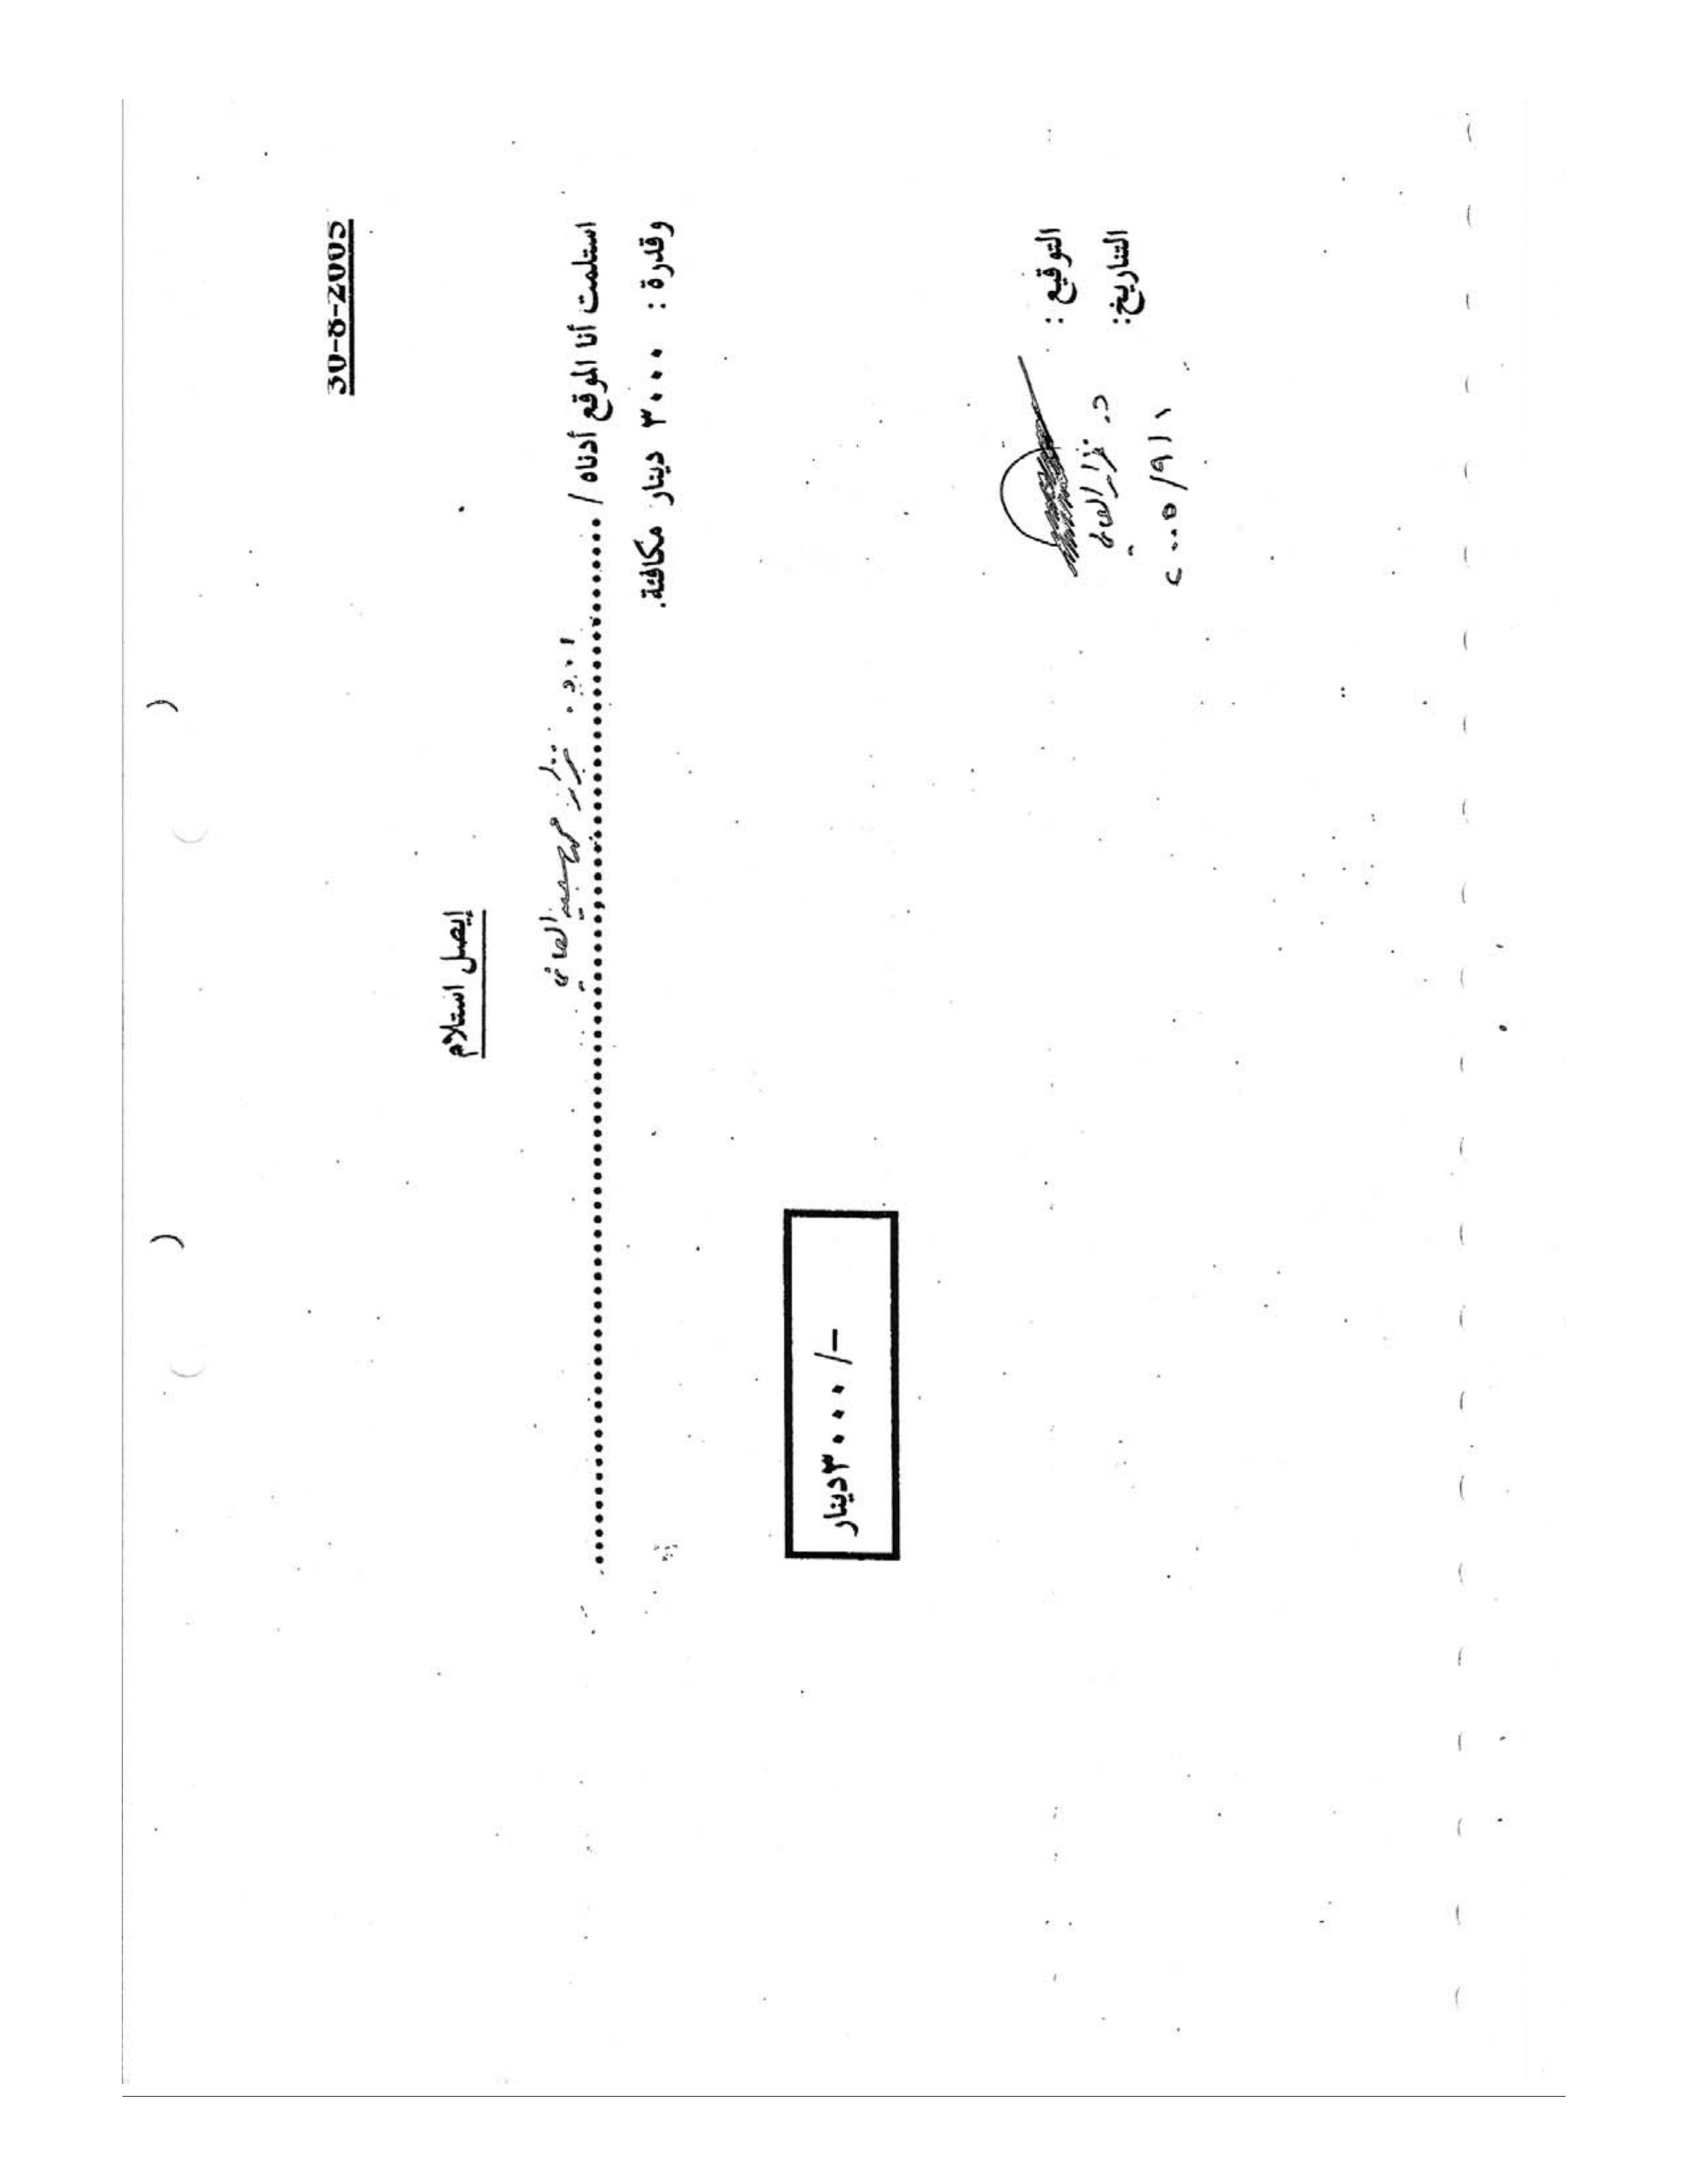 30-8-2005
إيصل استلام
استلمت أنا الموقع أدناه / ........ أ.د. نزار محمد سعيد العاني ........
وقدرة : ٣٠٠٠ دينار مكافئة.
٣٠٠٠دينار /-
التوقيع :
د. نزار العاني
التاريخ: ٢٠٠٥/٩/١